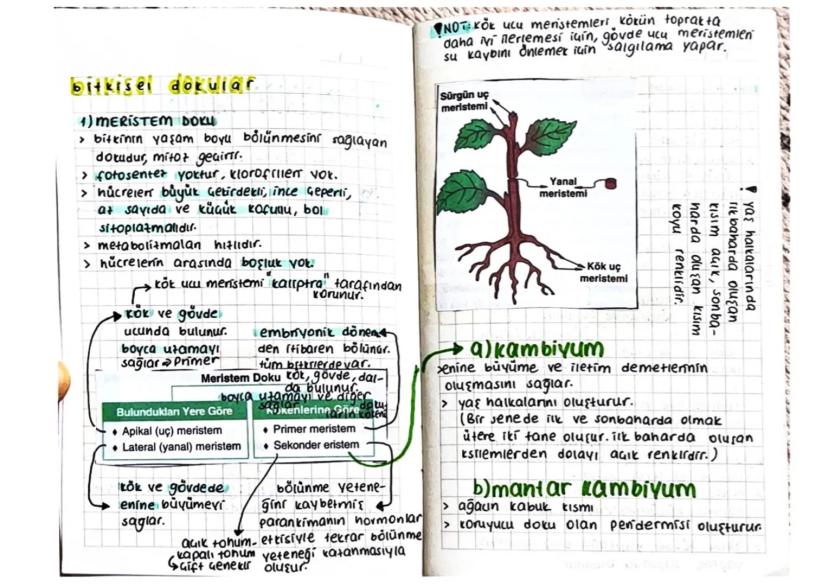 bitkisel dokular
1) MERİSTEM DOKU
> bitkinin yaşam boyu bölünmesini sağlayan
dokudur, mitoz geçirir.
> fotosentez yoktur, klorofilleri yok.
> hücreleri büyük çekirdekli, ince çeperli,
az sayıda ve küçük kofullu, bol
sitoplazmalıdır.
> metabolizmaları hızlıdır.
> hücrelerin arasında boşluk yok.
kök ucu meristemi "kaliptra" tarafından
korunur.
kök ve gövde
ucunda bulunur.
boyca uzamayı
sağlar → primer
embriyonik dönem-
den itibaren bölünür.
tüm bitkilerde var.
kök, gövde, dal-
da bulunur.
boyca uzamayı ve diğer
Meristem Doku
Bulundukları Yere Göre
♦ Apikal (uç) meristem
♦ Lateral (yanal) meristem
Kökenlerine Göre
♦ Primer meristem
♦ Sekonder eristem
kök ve gövdede
enine büyümeyi
sağlar.
bölünme yetene-
ğini kaybetmiş
parankimanın hormonlar
etkisiyle tekrar bölünme
yeteneği kazanmasıyla
oluşur.
açık tohum-
kapalı tohum
çift çenekli
! NOT: kök ucu meristemleri kökün toprakta
daha iyi ilerlemesi için, gövde ucu meristemleri
su kaybını önlemek için salgılama yapar.
Sürgün uç
meristemi
Yanal
meristemi
Kök uç
meristemi
! yaş halkalarında
ilkbaharda oluşan
kısım açık, sonba-
harda oluşan kısım
koyu renklidir.
a) kambiyum
>enine büyüme ve iletim demetlerinin
oluşmasını sağlar.
> yaş halkalarını oluşturur.
(Bir senede ilk ve sonbaharda olmak
üzere iki tane oluşur. ilk baharda oluşan
ksilemlerden dolayı açık renklidir.)
b) mantar kambiyum
> ağacın kabuk kısmı
> koruyucu doku olan peridermisi oluşturur.